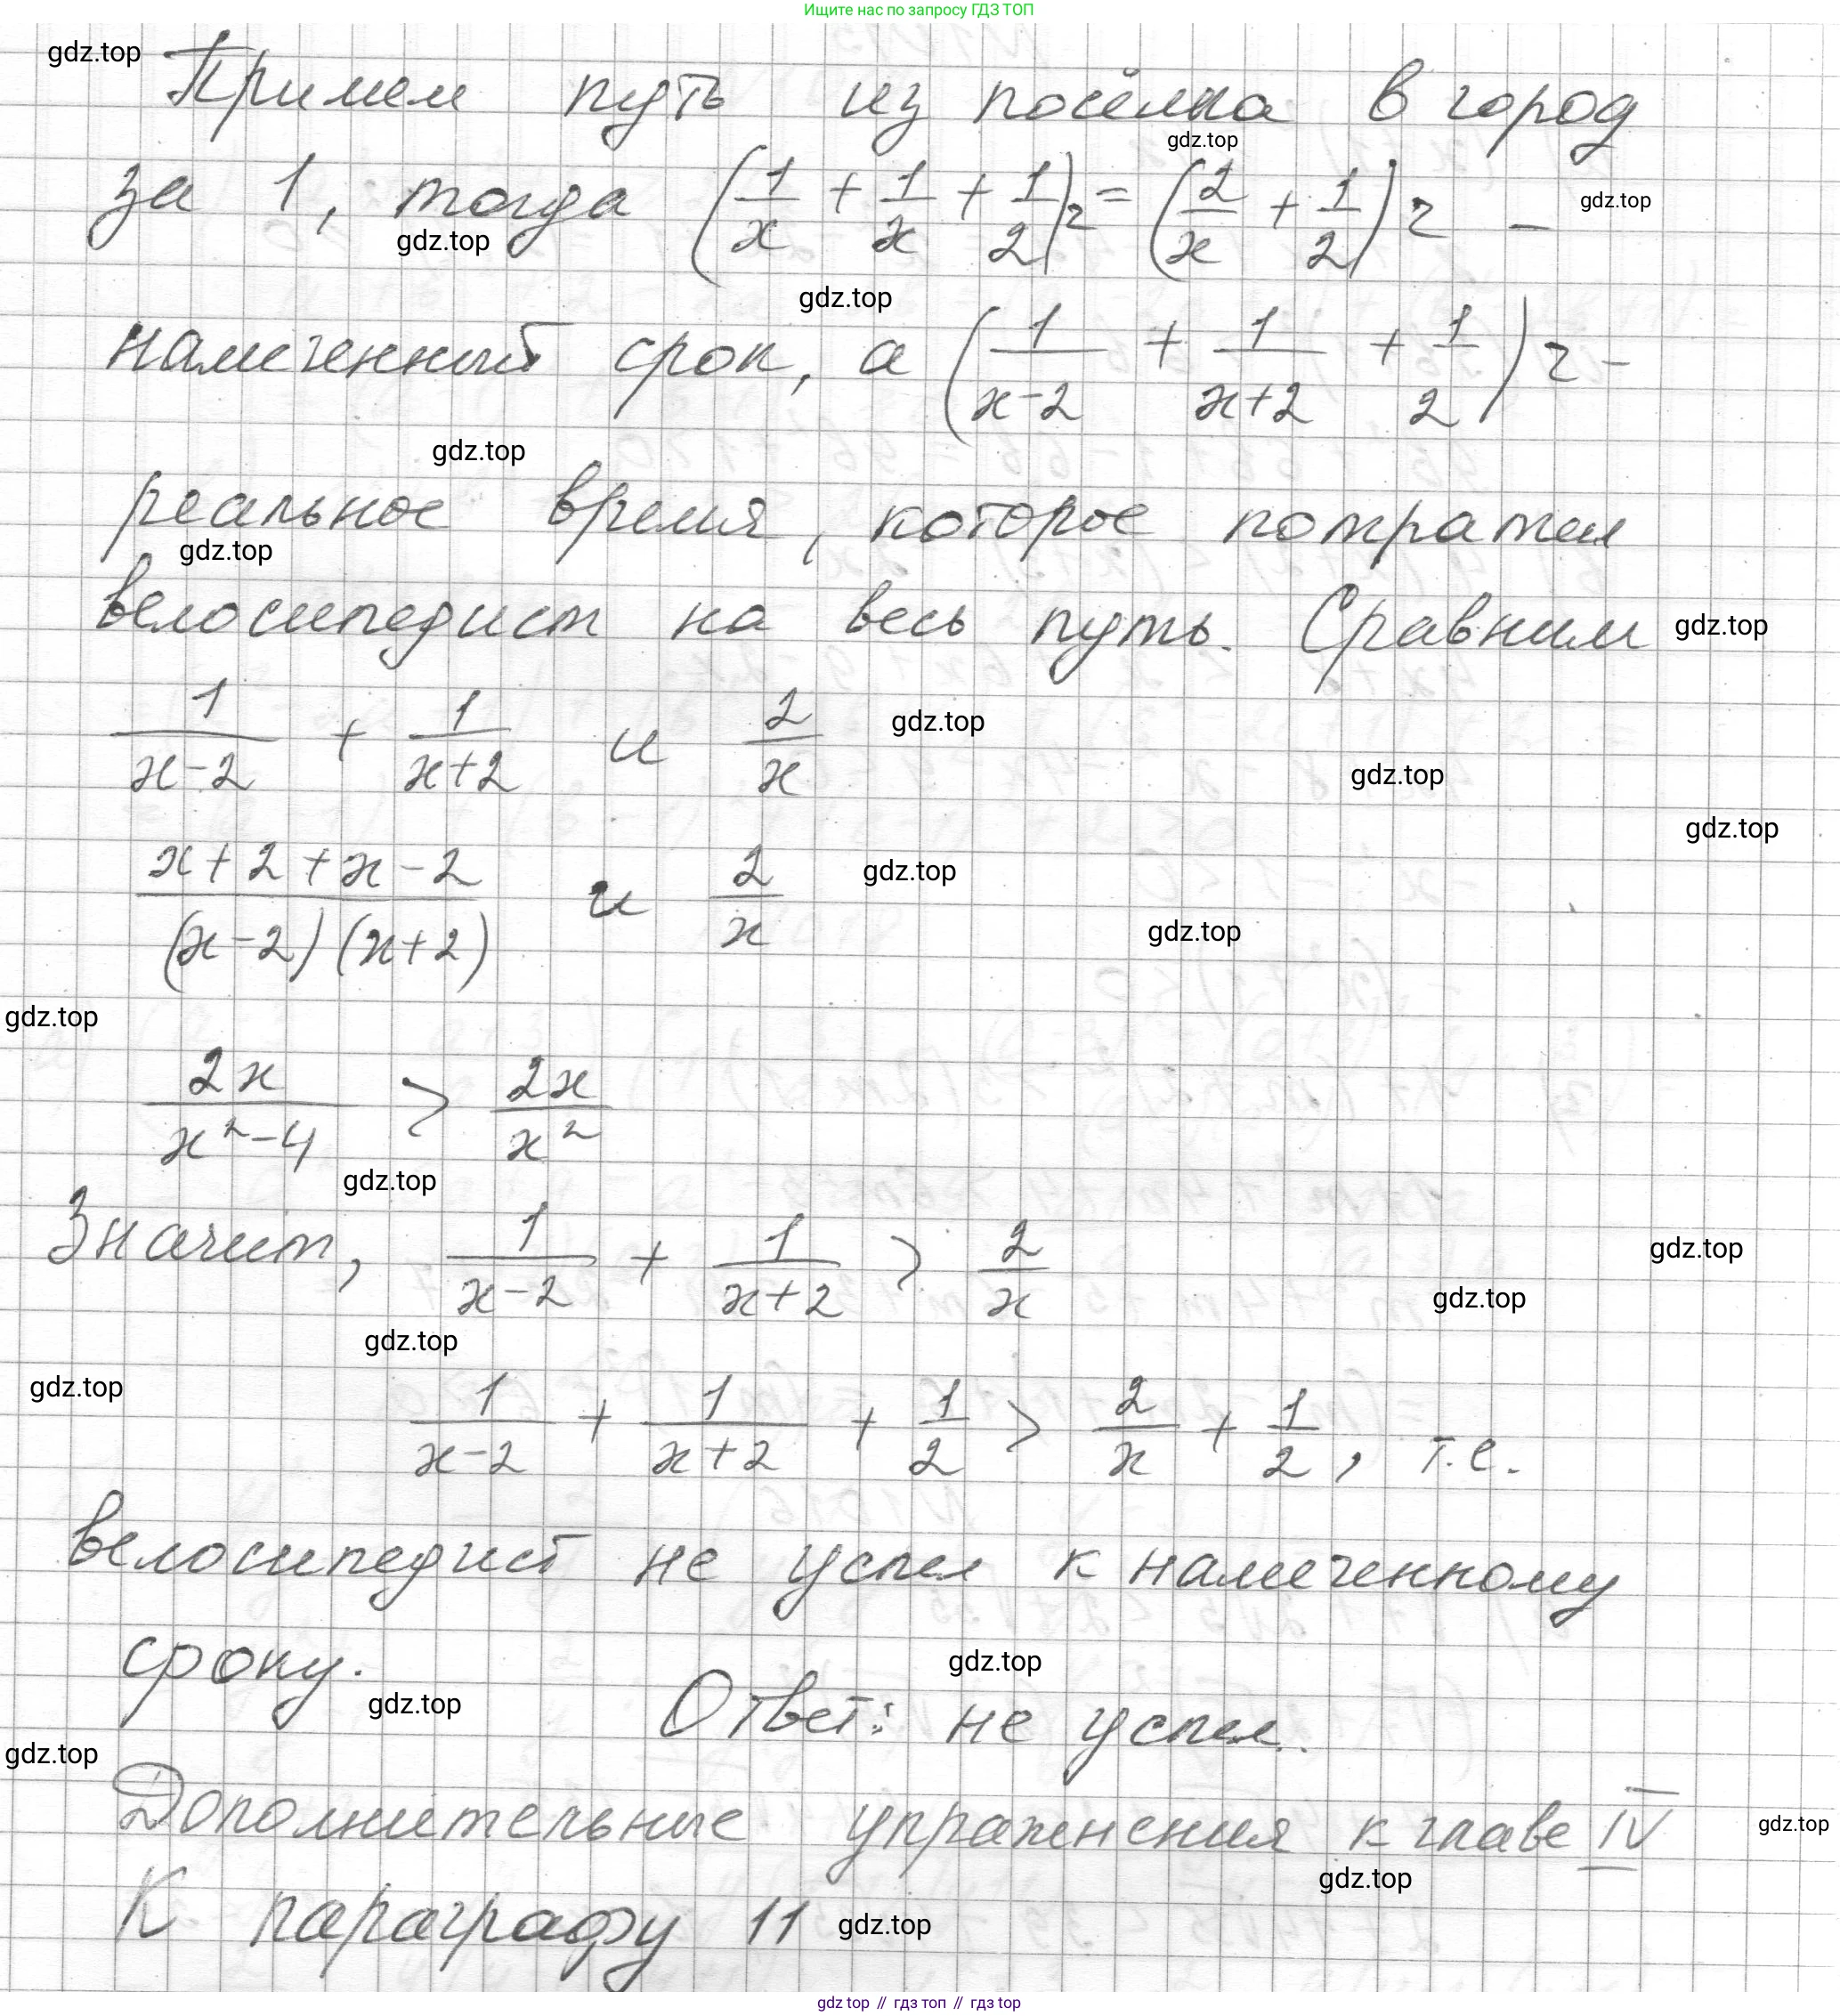 Ищите нас по запросу ГДЗ ТОП
gdz.top
Примем путь из посёлка в город
gdz.top
за 1, тогда (1/x + 1/x + 1/2) ч = (2/x + 1/2) ч –
gdz.top
gdz.top
gdz.top
намеченный срок, а (1/(x-2) + 1/(x+2) + 1/2) ч –
gdz.top
реальное время, которое потратил
gdz.top
велосипедист на весь путь. Сравним
gdz.top
1/(x-2) + 1/(x+2) и 2/x
gdz.top
gdz.top
gdz.top
(x+2+x-2)/((x-2)(x+2)) и 2/x
gdz.top
gdz.top
gdz.top
2x/(x²-4) > 2x/x²
gdz.top
Значит, 1/(x-2) + 1/(x+2) > 2/x
gdz.top
gdz.top
gdz.top
gdz.top
1/(x-2) + 1/(x+2) + 1/2 > 2/x + 1/2, т.е.
велосипедист не успел к намеченному
сроку.
gdz.top
gdz.top
Ответ: не успел.
gdz.top
Дополнительные упражнения к главе IV
gdz.top
gdz.top
К параграфу 11
gdz.top
gdz top // гдз топ // gdz top